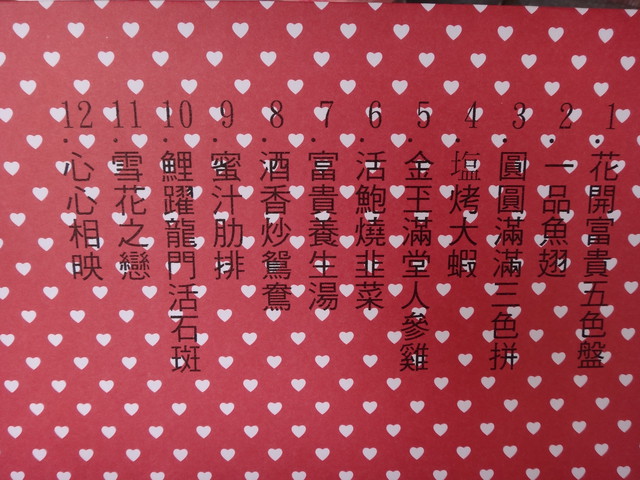 1.花開富貴五色盤
2.一品魚翅
3.圓圓滿滿三色拼
4.塩烤大蝦
5.金玉滿堂人參雞
6.活鮑燒韭菜
7.富貴養生湯
8.酒香炒鴛鴦
9.蜜汁肋排
10.鯉躍龍門活石斑
11.雪花之戀
12.心心相映